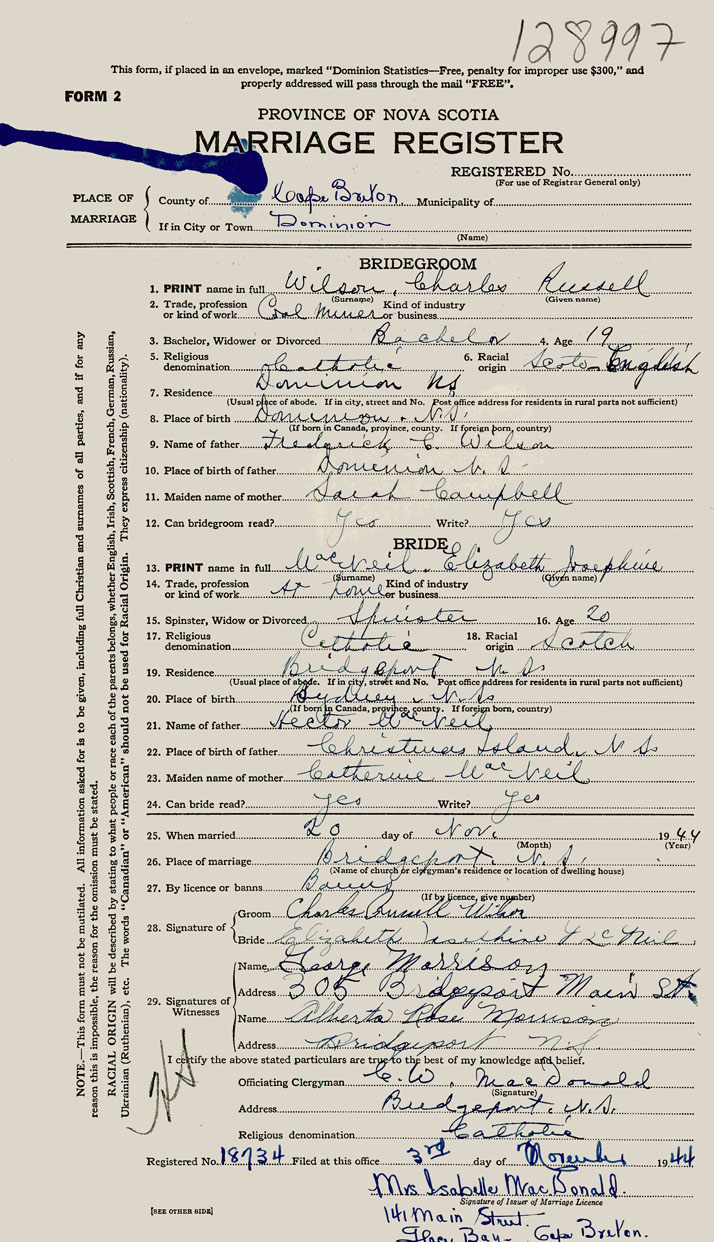 128997
This form, if placed in an envelope, marked "Dominion Statistics—Free, penalty for improper use $300," and
properly addressed will pass through the mail "FREE".
FORM 2
PROVINCE OF NOVA SCOTIA
MARRIAGE REGISTER
REGISTERED No.
(For use of Registrar General only)
PLACE OF MARRIAGE
County of Cape Breton. Municipality of
If in City or Town Dominion
(Name)
BRIDEGROOM
1. PRINT name in full Wilson, Charles Russell
(Surname) (Given name)
2. Trade, profession or kind of work Coal miner Kind of industry or business
3. Bachelor, Widower or Divorced Bachelor 4. Age 19
5. Religious denomination Catholic 6. Racial origin Scotch English
7. Residence Dominion NS
(Usual place of abode. If in city, street and No. Post office address for residents in rural parts not sufficient)
8. Place of birth Dominion. N.S.
(If born in Canada, province, county. If foreign born, country)
9. Name of father Fredrick C. Wilson
10. Place of birth of father Dominion N. S.
11. Maiden name of mother Sarah Campbell
12. Can bridegroom read? Yes Write? Yes
BRIDE
13. PRINT name in full MacNeil, Elizabeth Josephine
(Surname) (Given name)
14. Trade, profession or kind of work At home Kind of industry or business
15. Spinster, Widow or Divorced Spinster 16. Age 20
17. Religious denomination Catholic 18. Racial origin Scotch
19. Residence Bridgeport N. S.
(Usual place of abode. If in city, street and No. Post office address for residents in rural parts not sufficient)
20. Place of birth Sydney. N. S.
(If born in Canada, province, county. If foreign born, country)
21. Name of father Hector MacNeil
22. Place of birth of father Christmas Island, N S.
23. Maiden name of mother Catherine MacNeil
24. Can bride read? yes Write? Yes
25. When married 20 day of Nov. 1944
(Month) (Year)
26. Place of marriage Bridgeport, N. S.
(Name of church or clergyman's residence or location of dwelling house)
27. By licence or banns Banns
(If by licence, give number)
28. Signature of
Groom Charles Russell Wilson
Bride Elizabeth Josephine McNeil
29. Signatures of Witnesses
Name George Morrison
Address 305 Bridgeport Main St.
Name Alberta Rose Morrison
Address Bridgeport N.S.
I certify the above stated particulars are true to the best of my knowledge and belief.
Officiating Clergyman C. W. MacDonald
(Signature)
Address Bridgeport. N.S.
Religious denomination Catholic
Registered No. 18734 Filed at this office 3rd day of November 1944
Mrs Isabelle MacDonald.
Signature of Issuer of Marriage Licence
141 Main Street.
Glace Bay- Cape Breton.
[SEE OTHER SIDE]
NOTE.—This form must not be mutilated. All information asked for is to be given, including full Christian and surnames of all parties, and if for any
reason this is impossible, the reason for the omission must be stated.
RACIAL ORIGIN will be described by stating to what people or race each of the parents belongs, whether English, Irish, Scottish, French, German, Russian,
Ukrainian (Ruthenian), etc. The words "Canadian" or "American" should not be used for Racial Origin. They express citizenship (nationality).